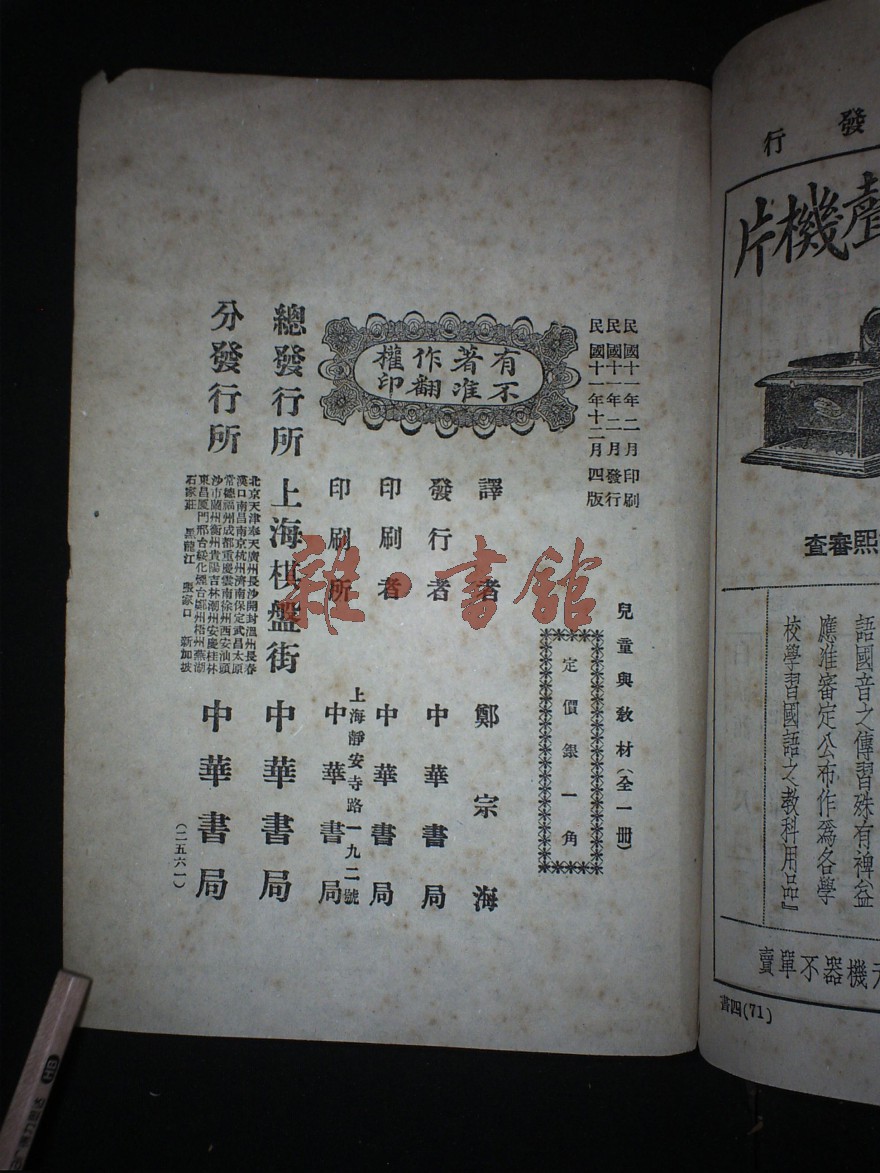 發行
聲機片
熙審查
語國音之傳習殊有裨益
應准審定公布作爲各學
校學習國語之教科用品』
機器不單賣
書四(71)
民國十一年二月印刷
民國十一年二月發行
民國十一年十二月四版
兒童與教材(全一冊)
定價銀一角
有著作權
不准翻印
譯者 鄭宗海
發行者 中華書局
印刷者 中華書局
上海靜安寺路一九二號
印刷所 中華書局
總發行所 上海棋盤街 中華書局
分發行所 中華書局
北京天津奉天廣州長沙開封溫州長春
漢口南昌南京杭州濟南保定武昌太原
常德福州成都重慶雲南徐州西安汕頭
沙市蘭州衡州貴陽吉林潮州安慶桂林
東昌厦門邢台綏化煙台鄭州梧州蕪湖
石家莊 黑龍江 張家口 新加坡
(二五六一)
雜·書館
HB